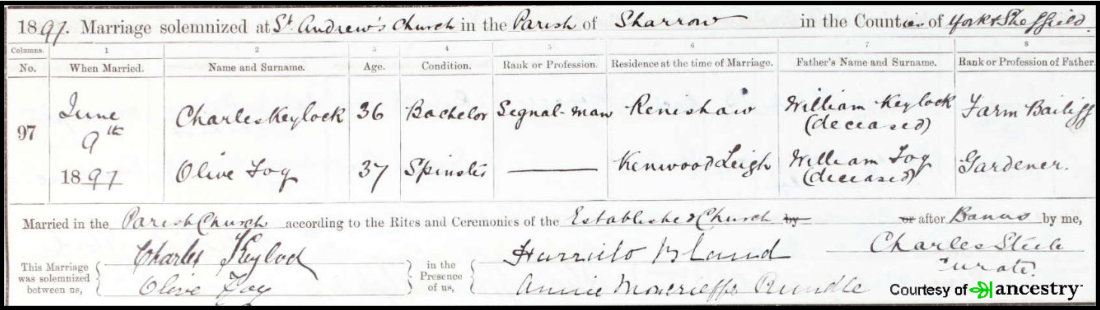 1897. Marriage solemnized at St Andrew's Church in the Parish of Sharrow in the Counties of York & Sheffield.
Columns. 1 2 3 4 5 6 7 8
No. When Married. Name and Surname. Age. Condition. Rank or Profession. Residence at the time of Marriage. Father's Name and Surname. Rank or Profession of Father.
97 June 9th 1897 Charles Keylock 36 Bachelor Segnal-man Renishaw William Keylock (deceased) Farm Bailiff
Olive Foy 37 Spinster Kenwood Leigh William Foy (deceased) Gardener.
Married in the Parish Church according to the Rites and Ceremonies of the Established Church by or after Banns by me,
This Marriage was solemnized between us, Charles Keylock in the Presence of us, Charles Steele
Olive Foy Annie Moncrieffe Rundle Curate.
Courtesy of ancestry